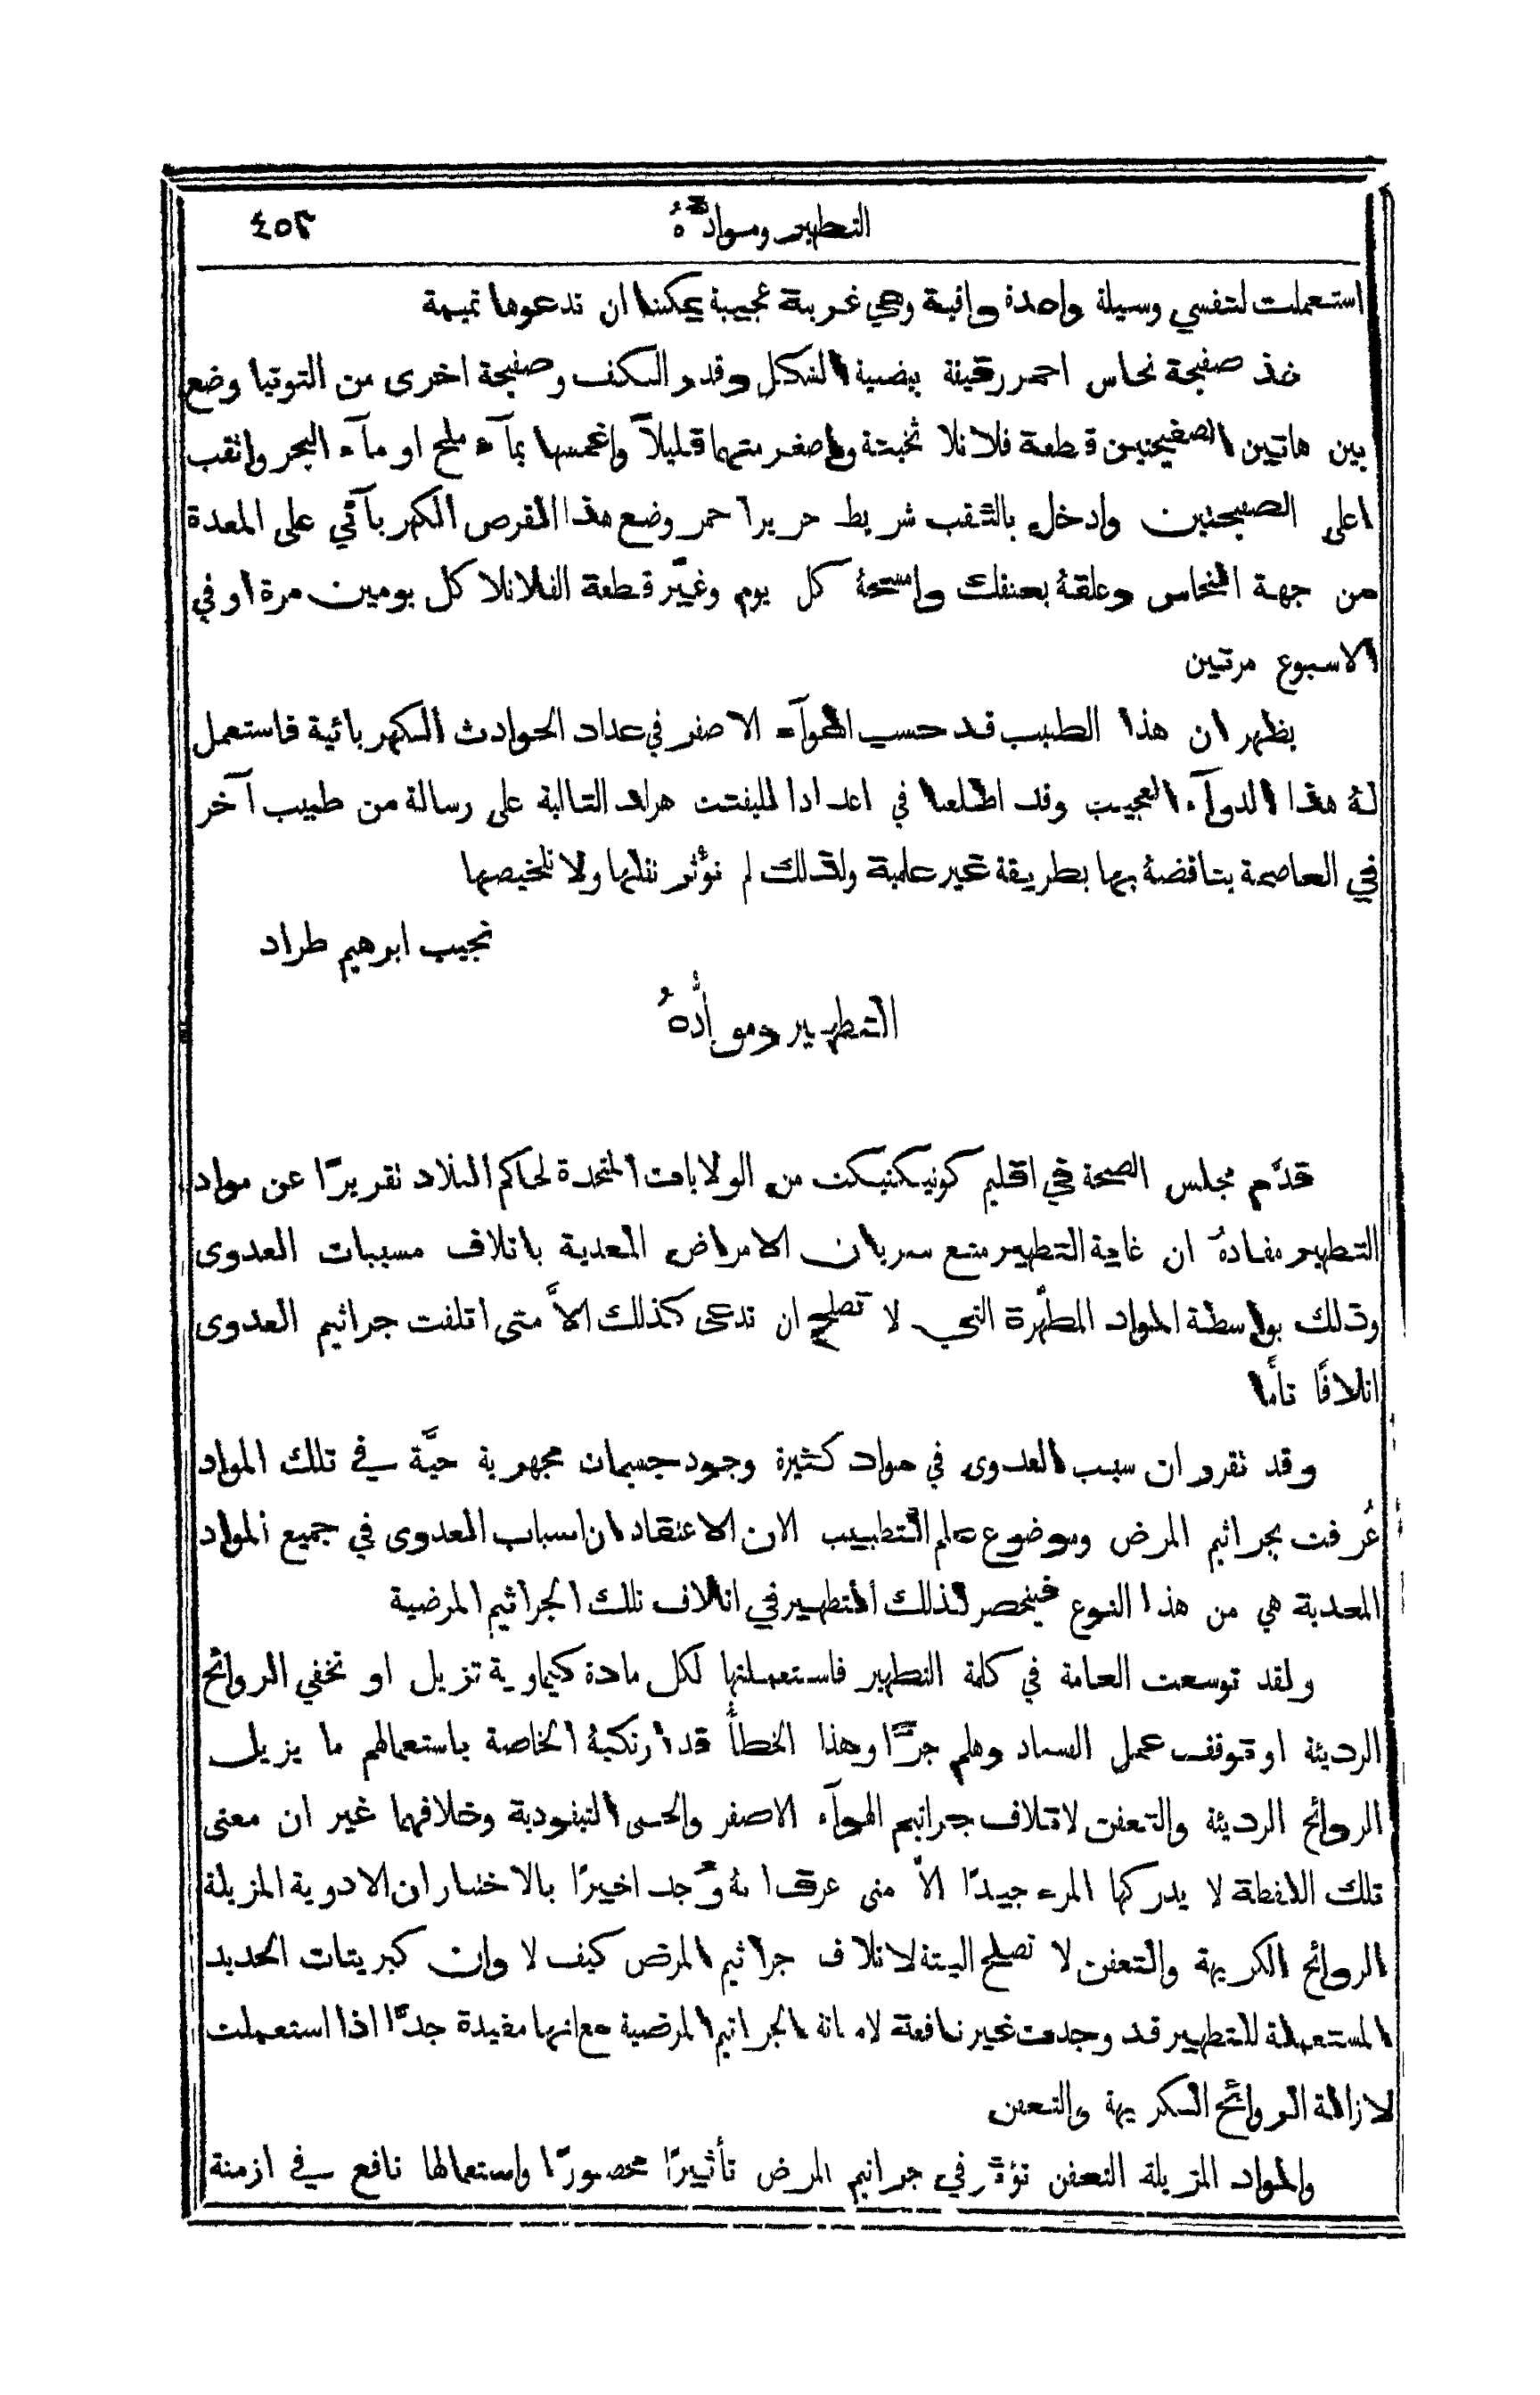 التطهير وموادّهُ ٤٥٣
استعملت لنفسي وسيلة واحدة واقية وهي غريبة عجيبة يمكننا ان ندعوها تميمة
خذ صفيحة نحاس احمر رقيقة بيضية الشكل وقدر الكف وصفيحة اخرى من التوتيا وضع
بين هاتين الصفيحتين قطعة فلانلا ثخينة واصغر منهما قليلاً واغمسها بمآء ملح او مآء البحر واثقب
اعلى الصفيحتين وادخل بالثقب شريط حرير احمر وضع هذا القرص الكهربآئي على المعدة
من جهة النحاس وعلقهُ بعنقك وامسحهُ كل يوم وغيّر قطعة الفلانلا كل يومين مرة او في
الاسبوع مرتين
يظهر ان هذا الطبيب قد حسب الهوآء الاصفر في عداد الحوادث الكهربائية فاستعمل
لهُ هذا الدوآء العجيب وقد اطلعنا في اعداد المليفنت هرالد التالية على رسالة من طبيب آخر
في العاصمة يناقضهُ بها بطريقة غير علمية ولذلك لم نؤثر نقلها ولا تلخيصها
نجيب ابرهيم طراد
التطهير وموادُّهُ
قدَّم مجلس الصحة في اقليم كونيكتيكت من الولايات المتحدة لحاكم البلاد تقريرًا عن مواد
التطهير مفادهُ ان غاية التطهير منع سريان الامراض المعدية باتلاف مسببات العدوى
وذلك بواسطة المواد المطهّرة التي لا تصلح ان تدعى كذلك الاَّ متى اتلفت جراثيم العدوى
اتلافًا تامًّا
وقد تقرر ان سبب العدوى في مواد كثيرة وجود جسيمات مجهرية حيَّة في تلك المواد
عُرفت بجراثيم المرض وموضوع علم التطبيب الان الاعتقاد ان اسباب العدوى في جميع المواد
المعدية هي من هذا النوع فينحصر لذلك التطهير في اتلاف تلك الجراثيم المرضية
ولقد توسعت العامة في كلمة التطهير فاستعملتها لكل مادة كيماوية تزيل او تخفي الروائح
الرديئة او توقف عمل الفساد وهلم جرًّا وهذا الخطأ قد ارتكبهُ الخاصة باستعمالهم ما يزيل
الروائح الرديئة والتعفن لاتلاف جراثيم الهوآء الاصفر والحمى التيفودية وخلافهما غير ان معنى
تلك اللفظة لا يدركها المرء جيدًا الاَّ متى عرف انهُ وُجد اخيرًا بالاختبار ان الادوية المزيلة
الروائح الكريهة والتعفن لا تصلح البتة لاتلاف جراثيم المرض كيف لا وان كبريتات الحديد
المستعملة للتطهير قد وجدت غير نافعة لاماتة الجراثيم المرضية مع انها مفيدة جدًّا اذا استعملت
لازالة الروائح الكريهة والتعفن
والمواد المزيلة التعفن تؤثر في جراثيم المرض تأثيرًا محصورًا واستعمالها نافع في ازمنة